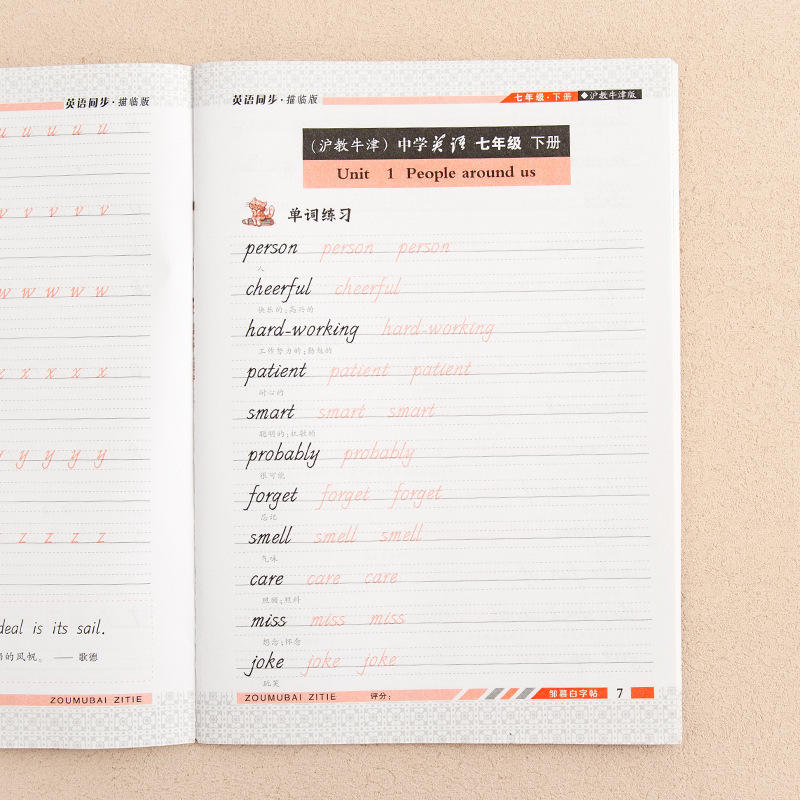 英语同步·描临版
u u u u u
v v v v v
w w w w w
x x x x x
y y y y y
z z z z z
deal is its sail.
的风帆。 —— 歌德
ZOUMUBAI ZITIE
英语同步·描临版 七年级·下册 ◆沪教牛津版
（沪教牛津）中学英语 七年级 下册
Unit 1 People around us
单词练习
person person person
人
cheerful cheerful
快乐的;高兴的
hard-working hard-working
工作努力的;勤勉的
patient patient patient
耐心的
smart smart smart
聪明的;机敏的
probably probably
很可能
forget forget forget
忘记
smell smell smell
气味
care care care
照顾;照料
miss miss miss
想念;怀念
joke joke joke
玩笑
ZOUMUBAI ZITIE 评分: 邹慕白字帖 7